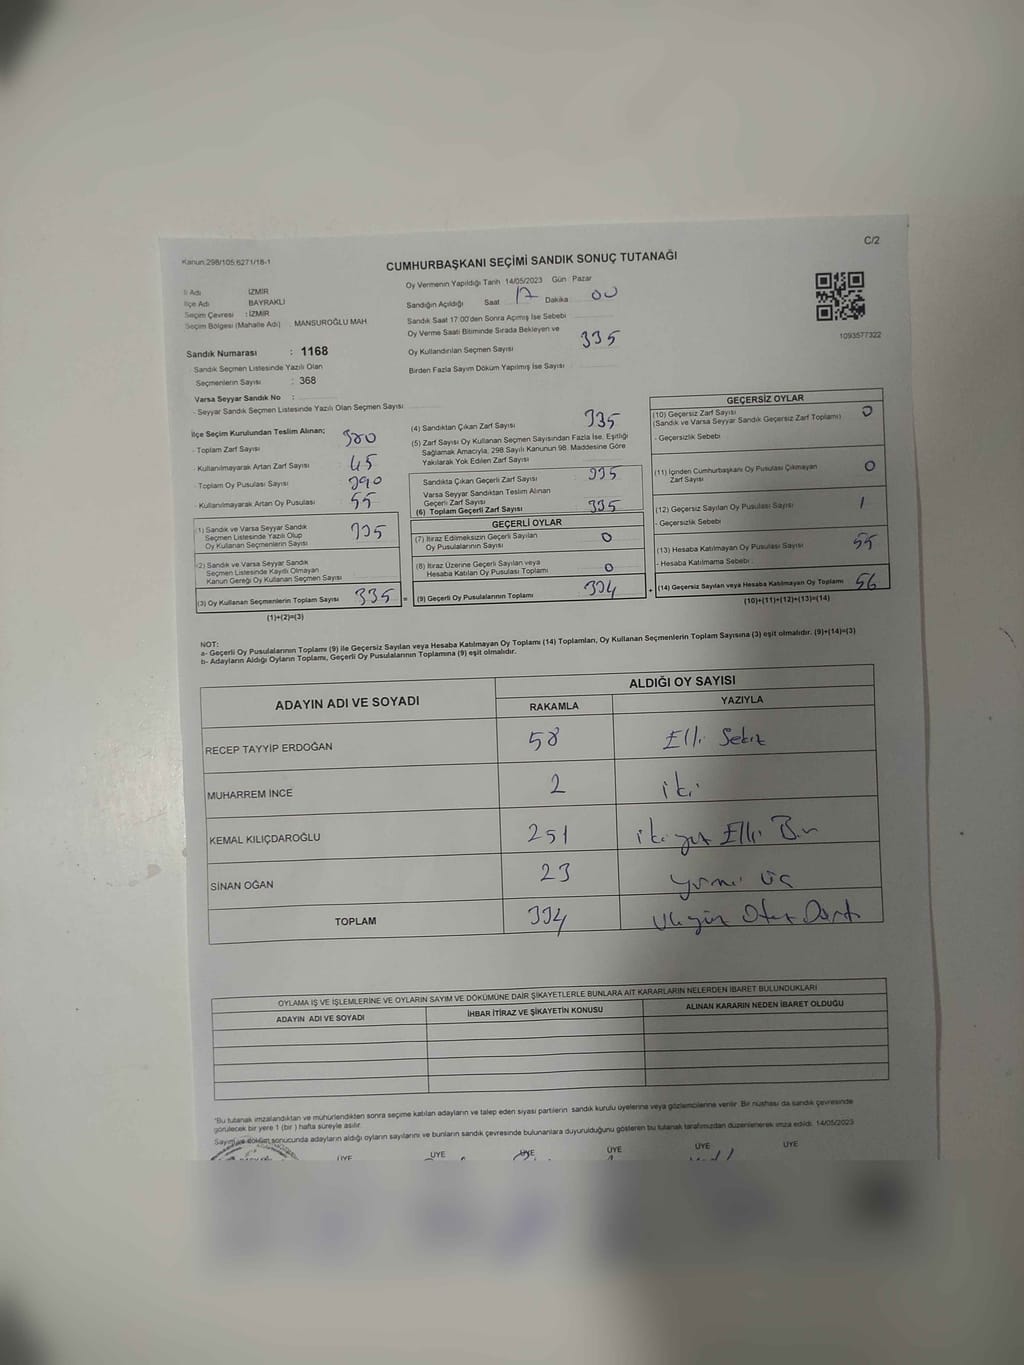 C/2
Kanun:298/105:6271/18-1
CUMHURBAŞKANI SEÇİMİ SANDIK SONUÇ TUTANAĞI
İl Adı İZMİR
İlçe Adı BAYRAKLI
Seçim Çevresi : İZMİR
Seçim Bölgesi (Mahalle Adı) : MANSUROĞLU MAH
Sandık Numarası : 1168
Sandık Seçmen Listesinde Yazılı Olan
Seçmenlerin Sayısı : 368
Varsa Seyyar Sandık No :
- Seyyar Sandık Seçmen Listesinde Yazılı Olan Seçmen Sayısı
Oy Vermenin Yapıldığı Tarih 14/05/2023 Gün : Pazar
Sandığın Açıldığı Saat 17 Dakika 00
Sandık Saat 17:00'den Sonra Açılmış İse Sebebi
Oy Verme Saati Bitiminde Sırada Bekleyen ve
Oy Kullandırılan Seçmen Sayısı 335
Birden Fazla Sayım Döküm Yapılmış İse Sayısı
1093577322
İlçe Seçim Kurulundan Teslim Alınan;
- Toplam Zarf Sayısı 380
- Kullanılmayarak Artan Zarf Sayısı 45
- Toplam Oy Pusulası Sayısı 390
- Kullanılmayarak Artan Oy Pusulası 55
(1) Sandık ve Varsa Seyyar Sandık
Seçmen Listesinde Yazılı Olup
Oy Kullanan Seçmenlerin Sayısı 335
(2) Sandık ve Varsa Seyyar Sandık
Seçmen Listesinde Kayıtlı Olmayan
Kanun Gereği Oy Kullanan Seçmen Sayısı
(3) Oy Kullanan Seçmenlerin Toplam Sayısı 335 =
(1)+(2)=(3)
(4) Sandıktan Çıkan Zarf Sayısı 335
(5) Zarf Sayısı Oy Kullanan Seçmen Sayısından Fazla İse, Eşitliği
Sağlamak Amacıyla, 298 Sayılı Kanunun 98. Maddesine Göre
Yakılarak Yok Edilen Zarf Sayısı
Sandıkta Çıkan Geçerli Zarf Sayısı 335
Varsa Seyyar Sandıktan Teslim Alınan
Geçerli Zarf Sayısı
(6) Toplam Geçerli Zarf Sayısı 335
GEÇERLİ OYLAR
(7) İtiraz Edilmeksizin Geçerli Sayılan
Oy Pusulalarının Sayısı 0
(8) İtiraz Üzerine Geçerli Sayılan veya
Hesaba Katılan Oy Pusulası Toplamı 0
(9) Geçerli Oy Pusulalarının Toplamı 334 +
GEÇERSİZ OYLAR
(10) Geçersiz Zarf Sayısı 0
(Sandık ve Varsa Seyyar Sandık Geçersiz Zarf Toplamı)
- Geçersizlik Sebebi
(11) İçinden Cumhurbaşkanı Oy Pusulası Çıkmayan
Zarf Sayısı 0
(12) Geçersiz Sayılan Oy Pusulası Sayısı 1
- Geçersizlik Sebebi
(13) Hesaba Katılmayan Oy Pusulası Sayısı 55
- Hesaba Katılmama Sebebi
(14) Geçersiz Sayılan veya Hesaba Katılmayan Oy Toplamı 56
(10)+(11)+(12)+(13)=(14)
NOT:
a- Geçerli Oy Pusulalarının Toplamı (9) ile Geçersiz Sayılan veya Hesaba Katılmayan Oy Toplamı (14) Toplamları, Oy Kullanan Seçmenlerin Toplam Sayısına (3) eşit olmalıdır. (9)+(14)=(3)
b- Adayların Aldığı Oyların Toplamı, Geçerli Oy Pusulalarının Toplamına (9) eşit olmalıdır.
ADAYIN ADI VE SOYADI ALDIĞI OY SAYISI
RAKAMLA YAZIYLA
RECEP TAYYİP ERDOĞAN 58 Elli Sekiz
MUHARREM İNCE 2 iki
KEMAL KILIÇDAROĞLU 251 ikiyüz Elli Bir
SİNAN OĞAN 23 yirmi üç
TOPLAM 334 üçyüz Otuz Dört
OYLAMA İŞ VE İŞLEMLERİNE VE OYLARIN SAYIM VE DÖKÜMÜNE DAİR ŞİKAYETLERLE BUNLARA AİT KARARLARIN NELERDEN İBARET BULUNDUKLARI
ADAYIN ADI VE SOYADI İHBAR İTİRAZ VE ŞİKAYETİN KONUSU ALINAN KARARIN NEDEN İBARET OLDUĞU
*Bu tutanak imzalandıktan ve mühürlendikten sonra seçime katılan adayların ve talep eden siyasi partilerin sandık kurulu üyelerine veya gözlemcilerine verilir. Bir nüshası da sandık çevresinde
görülecek bir yere 1 (bir) hafta süreyle asılır.
Sayım ve döküm sonucunda adayların aldığı oyların sayılarını ve bunların sandık çevresinde bulunanlara duyurulduğunu gösteren bu tutanak tarafımızdan düzenlenerek imza edildi. 14/05/2023
ÜYE ÜYE ÜYE ÜYE ÜYE ÜYE